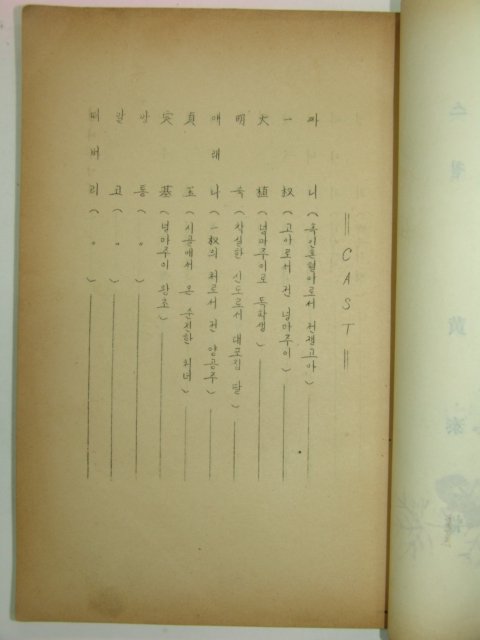 || CAST ||
짜니 (흑인혼혈아로서 전쟁고아)
一叔 (고아로서 전 넝마주이)
大植 (넝마주이로 독학생)
明숙 (착실한 신도로서 대포집 딸)
애래나 (一叔의 처로서 전 양공주)
貞玉 (시골에서 온 순진한 처녀)
寅基 (넝마주이 왕초)
방통 ( 〃 )
알고 ( 〃 )
떠버리 ( 〃 )